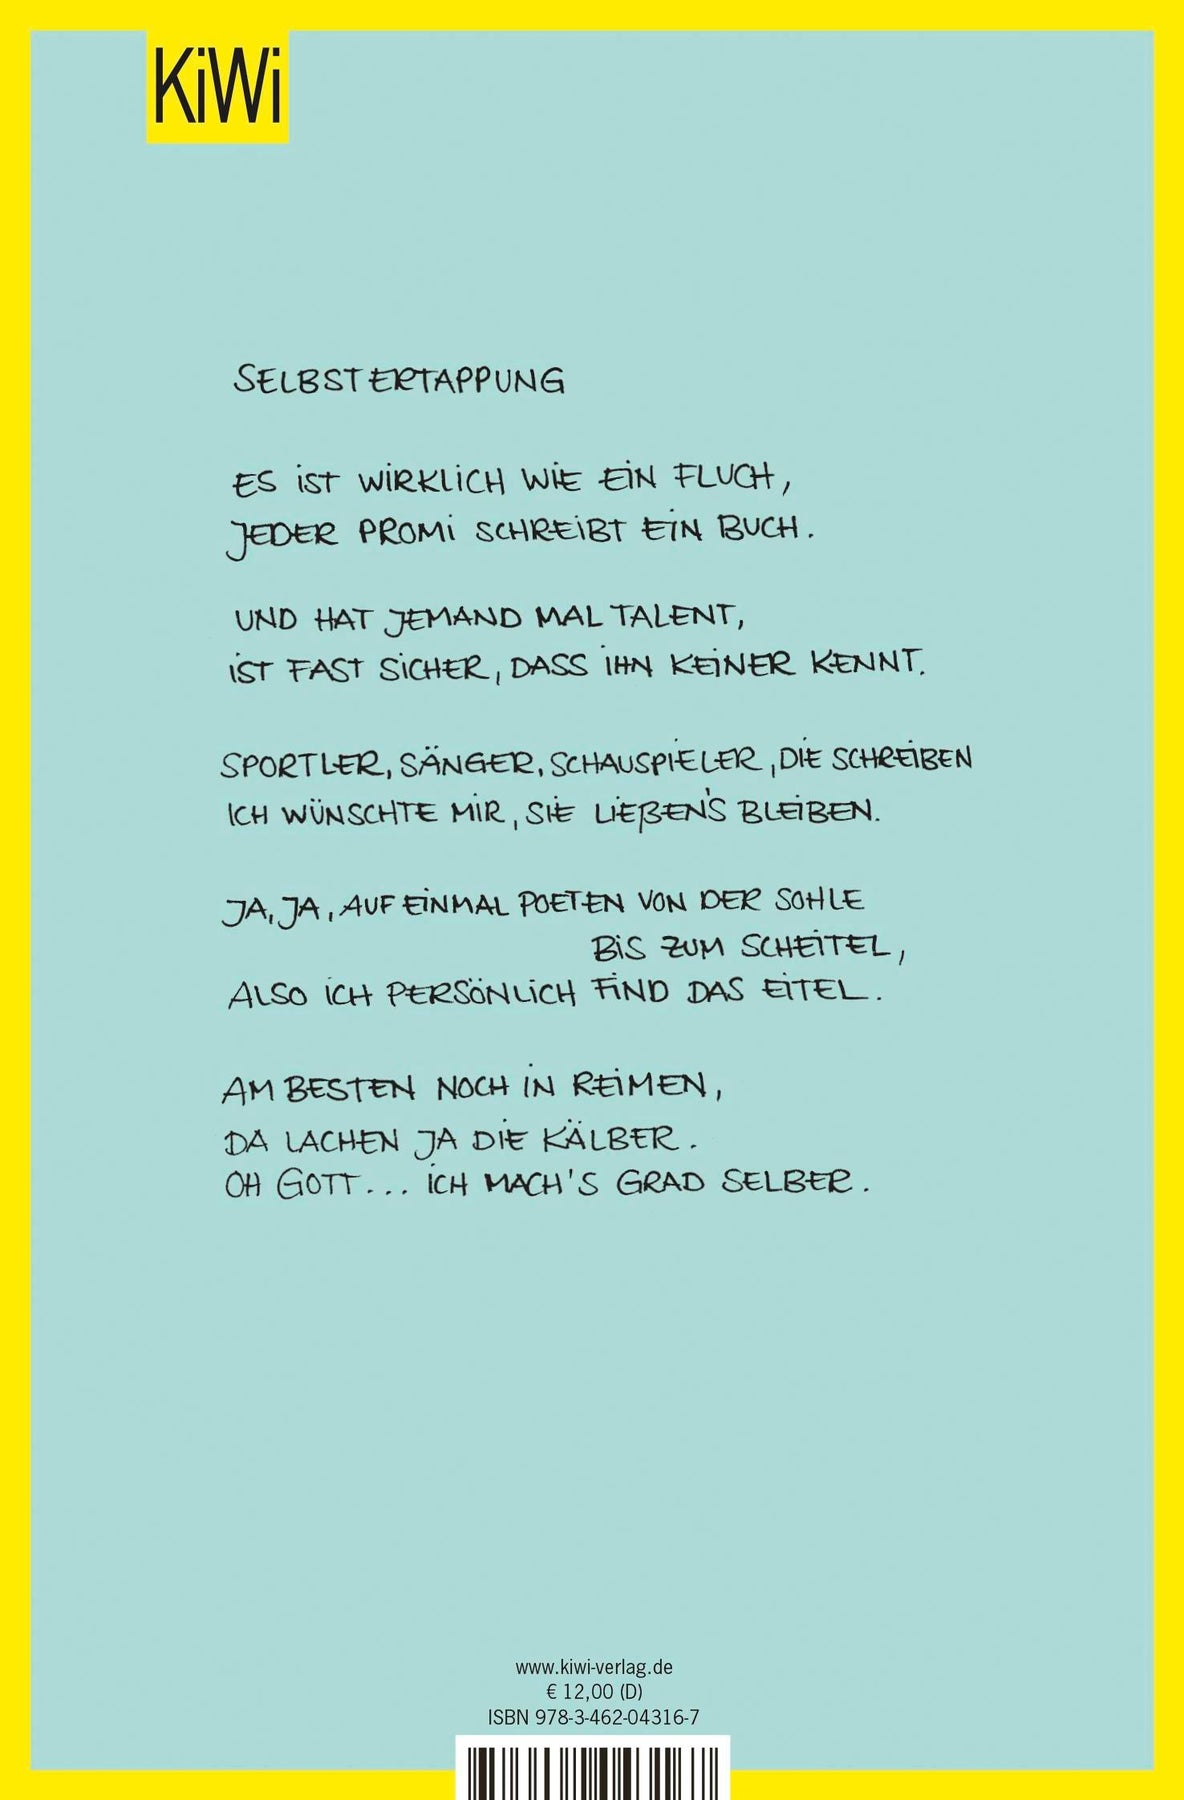 KiWi
SELBSTERTAPPUNG
ES IST WIRKLICH WIE EIN FLUCH,
JEDER PROMI SCHREIBT EIN BUCH.
UND HAT JEMAND MAL TALENT,
IST FAST SICHER, DASS IHN KEINER KENNT.
SPORTLER, SÄNGER, SCHAUSPIELER, DIE SCHREIBEN
ICH WÜNSCHTE MIR, SIE LIEßEN'S BLEIBEN.
JA, JA, AUF EINMAL POETEN VON DER SOHLE
BIS ZUM SCHEITEL,
ALSO ICH PERSÖNLICH FIND DAS EITEL.
AM BESTEN NOCH IN REIMEN,
DA LACHEN JA DIE KÄLBER.
OH GOTT... ICH MACH'S GRAD SELBER.
www.kiwi-verlag.de
€ 12,00 (D)
ISBN 978-3-462-04316-7